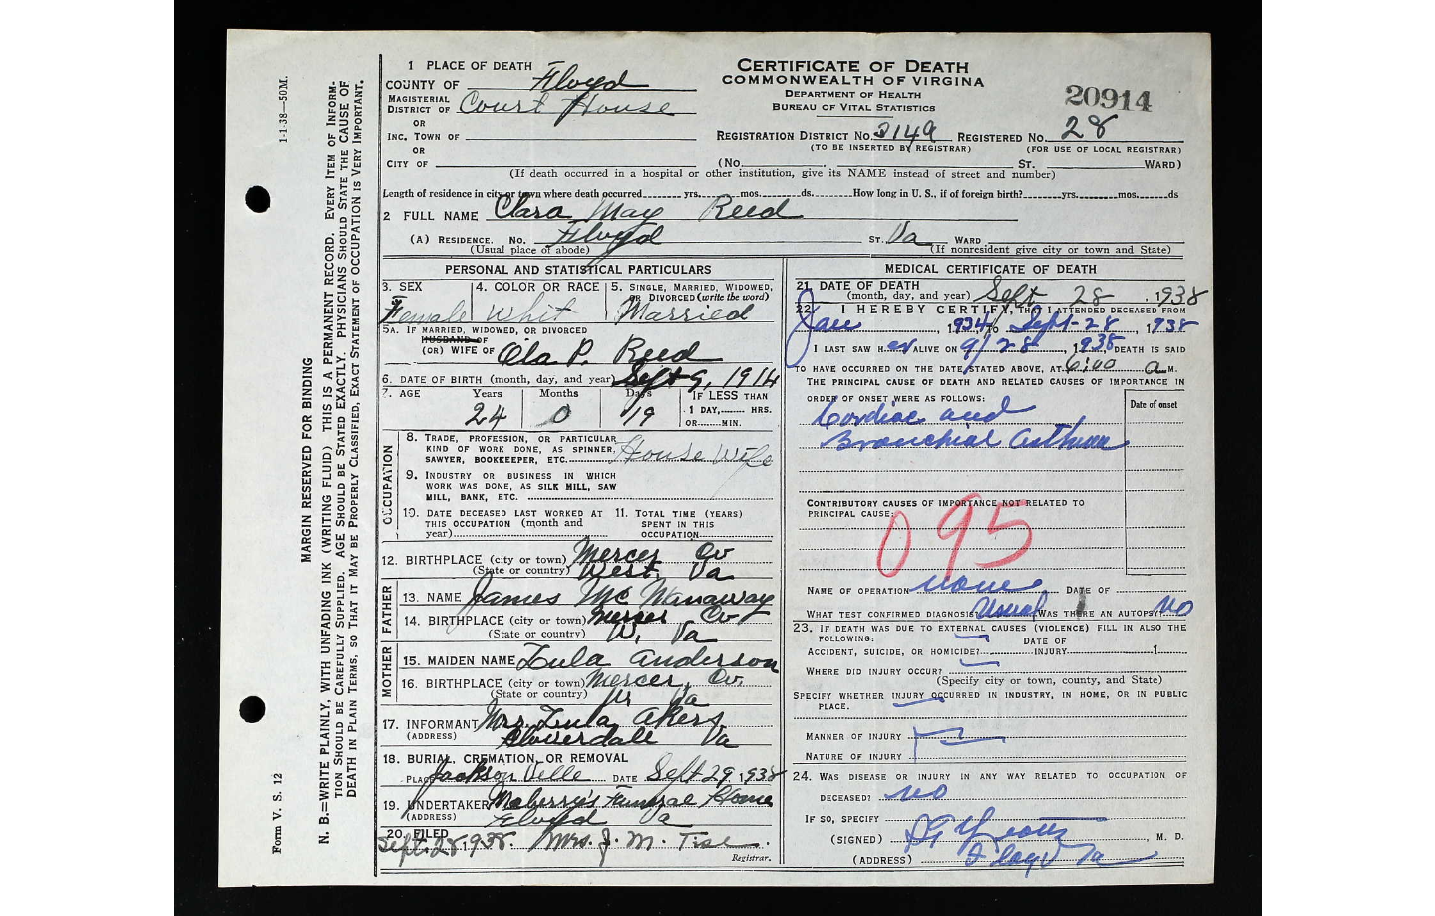 1 PLACE OF DEATH
COUNTY OF Floyd
MAGISTERIAL
DISTRICT OF Court House
OR
INC. TOWN OF
OR
CITY OF
CERTIFICATE OF DEATH
COMMONWEALTH OF VIRGINA
DEPARTMENT OF HEALTH
BUREAU OF VITAL STATISTICS
20914
REGISTRATION DISTRICT No. 3149 REGISTERED No. 28
(TO BE INSERTED BY REGISTRAR) (FOR USE OF LOCAL REGISTRAR)
(No. ST. WARD)
(If death occurred in a hospital or other institution, give its NAME instead of street and number)
Length of residence in city or town where death occurred yrs. mos. ds. How long in U. S., if of foreign birth? yrs. mos. ds
2 FULL NAME Clara May Reed
(A) RESIDENCE. No. Floyd ST. Va WARD
(Usual place of abode) (If nonresident give city or town and State)
PERSONAL AND STATISTICAL PARTICULARS
3. SEX 4. COLOR OR RACE 5. SINGLE, MARRIED, WIDOWED,
OR DIVORCED (write the word)
Female Whit Married
5A. IF MARRIED, WIDOWED, OR DIVORCED
HUSBAND OF
(OR) WIFE OF Ola P. Reed
6. DATE OF BIRTH (month, day, and year) Sept 9, 1914
7. AGE Years Months Days IF LESS THAN
1 DAY, HRS.
OR MIN.
24 0 19
OCCUPATION
8. TRADE, PROFESSION, OR PARTICULAR
KIND OF WORK DONE, AS SPINNER,
SAWYER, BOOKKEEPER, ETC. House Wife
9. INDUSTRY OR BUSINESS IN WHICH
WORK WAS DONE, AS SILK MILL, SAW
MILL, BANK, ETC.
10. DATE DECEASED LAST WORKED AT
THIS OCCUPATION (month and
year)
11. TOTAL TIME (YEARS)
SPENT IN THIS
OCCUPATION
12. BIRTHPLACE (city or town) Mercer Co
(State or country) West. Va
FATHER
13. NAME James Mc Nanaway
14. BIRTHPLACE (city or town) Mercer Co
(State or country) W. Va
MOTHER
15. MAIDEN NAME Lula Anderson
16. BIRTHPLACE (city or town) Mercer, Co.
(State or country) W Va
17. INFORMANT Mrs. Lula Akers
(ADDRESS) Cloverdale Va
18. BURIAL, CREMATION, OR REMOVAL
PLACE Jackson Ville DATE Sept 29, 1938
19. UNDERTAKER Maberry's Funeral Home
(ADDRESS) Floyd Va
20. FILED
Sept. 28, 1938. Mrs. J. M. Tise
Registrar.
MEDICAL CERTIFICATE OF DEATH
21. DATE OF DEATH
(month, day, and year) Sept 28, 1938
22. I HEREBY CERTIFY, THAT I ATTENDED DECEASED FROM
Jan, 1934, TO Sept-28, 1938
I LAST SAW H er ALIVE ON 9/28, 1938, DEATH IS SAID
TO HAVE OCCURRED ON THE DATE STATED ABOVE, AT 6:00 a M.
THE PRINCIPAL CAUSE OF DEATH AND RELATED CAUSES OF IMPORTANCE IN
ORDER OF ONSET WERE AS FOLLOWS: Date of onset
Cordiac and
Bronchial Asthma
CONTRIBUTORY CAUSES OF IMPORTANCE NOT RELATED TO
PRINCIPAL CAUSE:
095
NAME OF OPERATION none DATE OF
WHAT TEST CONFIRMED DIAGNOSIS Usual WAS THERE AN AUTOPSY? NO
23. IF DEATH WAS DUE TO EXTERNAL CAUSES (VIOLENCE) FILL IN ALSO THE
FOLLOWING: DATE OF
ACCIDENT, SUICIDE, OR HOMICIDE? INJURY 1
WHERE DID INJURY OCCUR?
(Specify city or town, county, and State)
SPECIFY WHETHER INJURY OCCURRED IN INDUSTRY, IN HOME, OR IN PUBLIC
PLACE.
MANNER OF INJURY
NATURE OF INJURY
24. WAS DISEASE OR INJURY IN ANY WAY RELATED TO OCCUPATION OF
DECEASED? NO
IF SO, SPECIFY
(SIGNED) M. D.
(ADDRESS) Floyd Va
1-1-38—50M.
MARGIN RESERVED FOR BINDING
N. B.—WRITE PLAINLY, WITH UNFADING INK (WRITING FLUID) THIS IS A PERMANENT RECORD. EVERY ITEM OF INFORM-
TION SHOULD BE CAREFULLY SUPPLIED. AGE SHOULD BE STATED EXACTLY. PHYSICIANS SHOULD STATE THE CAUSE OF
DEATH IN PLAIN TERMS, SO THAT IT MAY BE PROPERLY CLASSIFIED, EXACT STATEMENT OF OCCUPATION IS VERY IMPORTANT.
Form V. S. 12